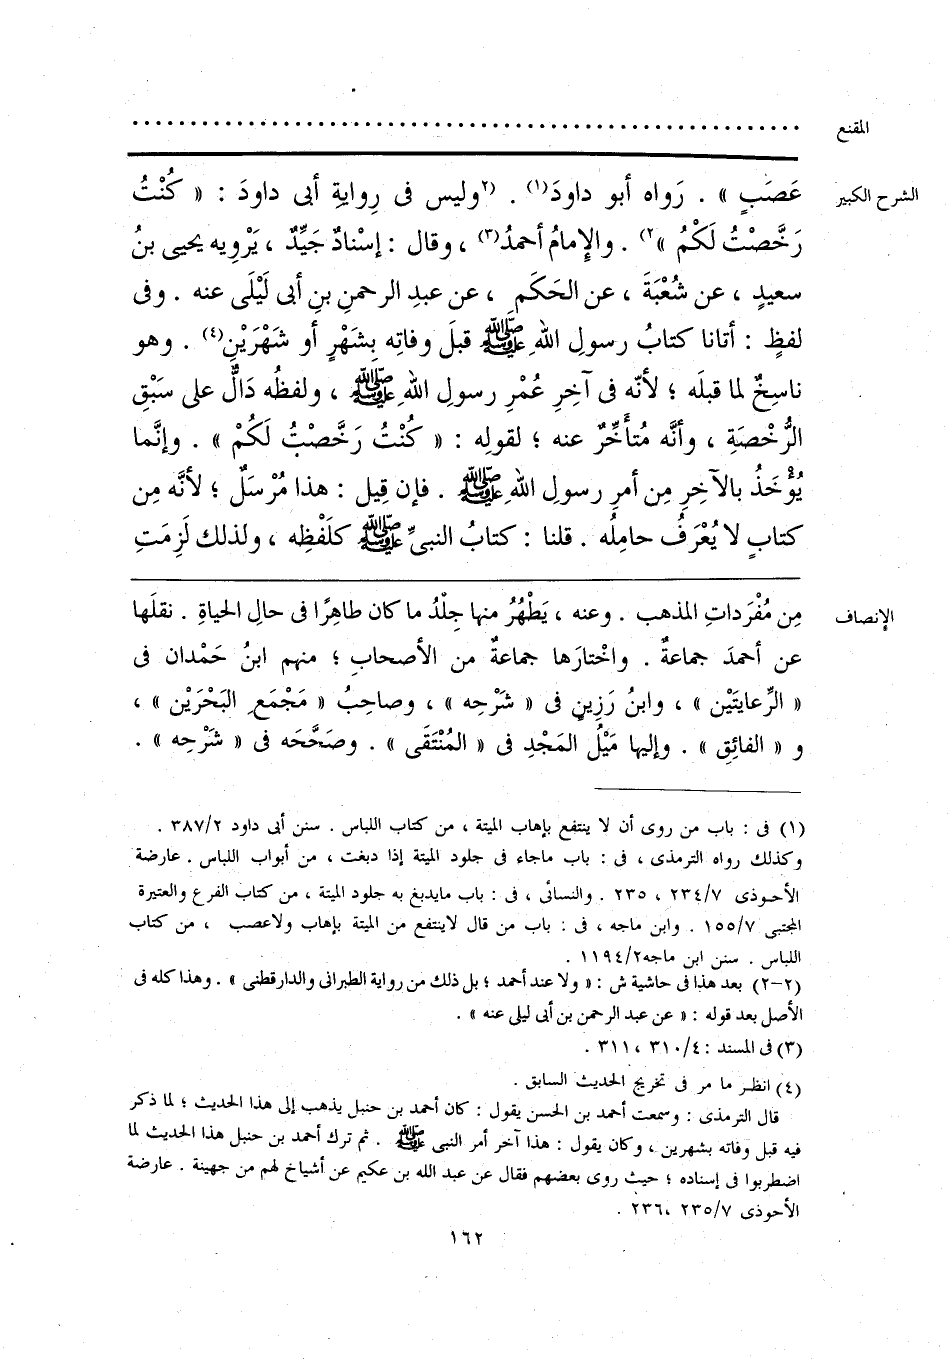 المقنع ...........................................................
الشرح الكبير
عَصَبٍ » . رَواه أبو داودَ(١) . (٢وليس فى رِوايةِ أبى داودَ : « كُنْتُ
رَخَّصْتُ لَكُمْ »٢) . والإِمامُ أحمدُ(٣) ، وقال : إسْنادٌ جَيِّدٌ ، يَرْوِيه يحيى بنُ
سعيدٍ ، عن شُعْبَةَ ، عن الحَكَمِ ، عن عبدِ الرحمنِ بنِ أبى لَيْلَى عنه . وفى
لفظٍ : أتانا كتابُ رسولِ اللهِ ﷺ قبلَ وفاتِه بِشَهْرٍ أو شَهْرَيْنِ(٤) . وهو
ناسِخٌ لما قبلَه ؛ لأنَّه فى آخِرِ عُمْرِ رسولِ اللهِ ﷺ ، ولفظُه دَالٌّ على سَبْقِ
الرُّخْصَةِ ، وأنَّه مُتأَخِّرٌ عنه ؛ لقولِه : « كُنْتُ رَخَّصْتُ لَكُمْ » . وإنَّما
يُؤْخَذُ بالآخِرِ مِن أمرِ رسولِ اللهِ ﷺ . فإن قِيل : هذا مُرْسَلٌ ؛ لأنَّه مِن
كتابٍ لا يُعْرَفُ حامِلُه . قلنا : كتابُ النبىِّ ﷺ كلَفْظِه ، ولذلك لَزِمَتِ
الإنصاف
مِن مُفْرَداتِ المذهب . وعنه ، يَطْهُرُ منها جِلْدُ ما كان طاهِرًا فى حالِ الحياةِ . نقلَها
عن أحمدَ جماعةٌ . واخْتارَها جماعةٌ من الأصحابِ ؛ منهم ابنُ حَمْدان فى
« الرِّعايتَيْن » ، وابنُ رَزِينٍ فى « شَرْحِه » ، وصاحِبُ « مَجْمَعِ البَحْرَيْن » ،
و « الفائِقِ » . وإليها مَيْلُ المَجْدِ فى « المُنْتَقَى » . وصَحَّحَه فى « شَرْحِه » .
(١) فى : باب من روى أن لا ينتفع بإهاب الميتة ، من كتاب اللباس . سنن أبى داود ٣٨٧/٢ .
وكذلك رواه الترمذى ، فى : باب ماجاء فى جلود الميتة إذا دبغت ، من أبواب اللباس . عارضة
الأحوذى ٢٣٤/٧ ، ٢٣٥ . والنسائى ، فى : باب مايدبغ به جلود الميتة ، من كتاب الفرع والعتيرة
المجتبى ١٥٥/٧ . وابن ماجه ، فى : باب من قال لاينتفع من الميتة بإهاب ولاعصب ، من كتاب
اللباس . سنن ابن ماجه ١١٩٤/٢ .
(٢-٢) بعد هذا فى حاشية ش : « ولا عند أحمد ؛ بل ذلك من رواية الطبرانى والدارقطنى » . وهذا كله فى
الأصل بعد قوله : « عن عبد الرحمن بن أبى ليلى عنه » .
(٣) فى المسند : ٣١٠/٤ ، ٣١١ .
(٤) انظر ما مر فى تخريج الحديث السابق .
قال الترمذى : وسمعت أحمد بن الحسن يقول : كان أحمد بن حنبل يذهب إلى هذا الحديث ؛ لما ذكر
فيه قبل وفاته بشهرين ، وكان يقول : هذا آخر أمر النبى ﷺ . ثم ترك أحمد بن حنبل هذا الحديث لما
اضطربوا فى إسناده ؛ حيث روى بعضهم فقال عن عبد الله بن عكيم عن أشياخ لهم من جهينة . عارضة
الأحوذى ٢٣٥/٧ ، ٢٣٦ .
١٦٢